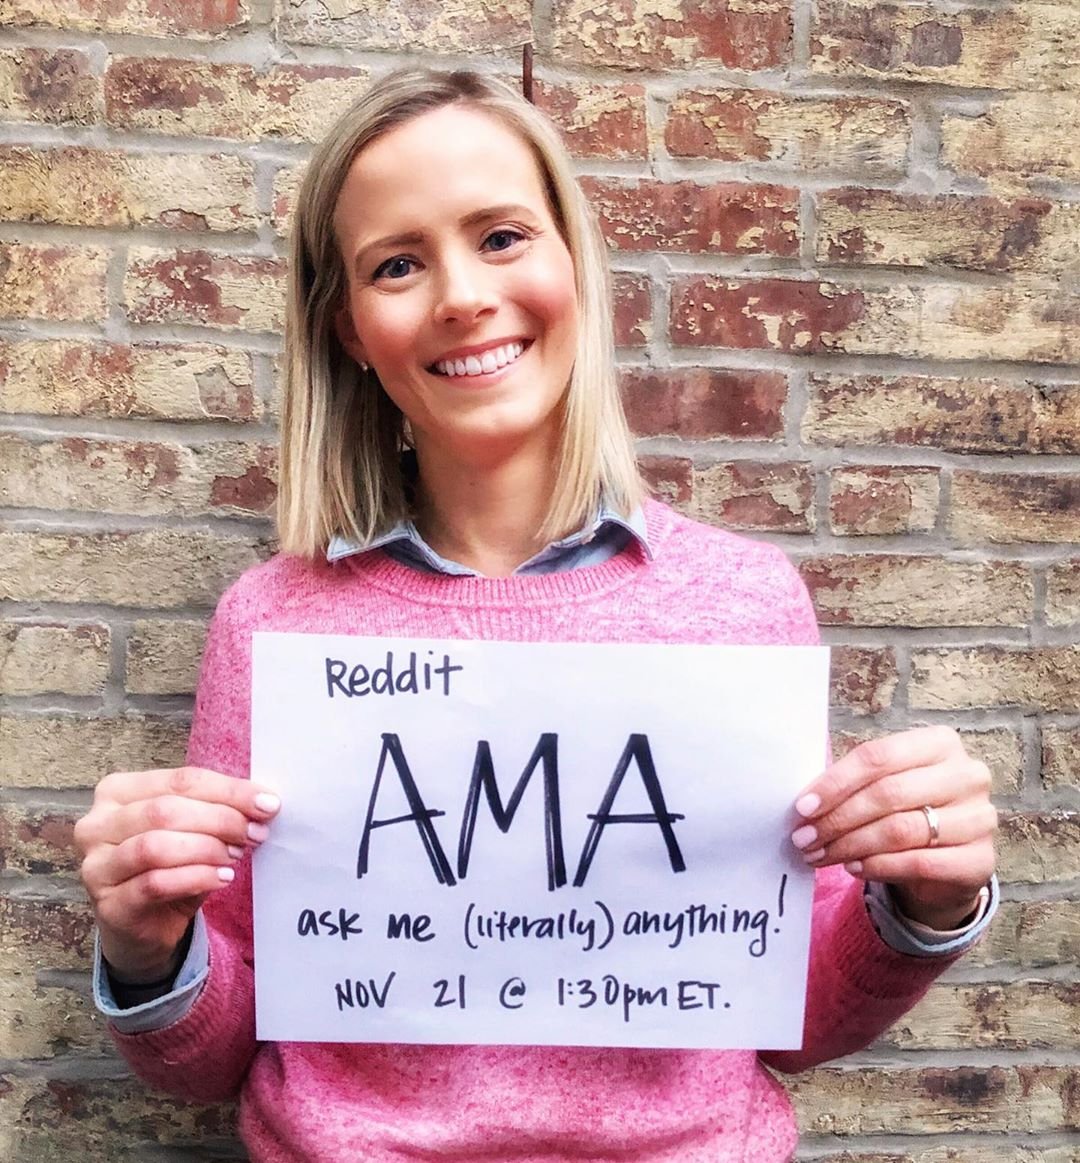 Reddit
AMA
ask me (literally) anything!
NOV 21 @ 1:30pm ET.